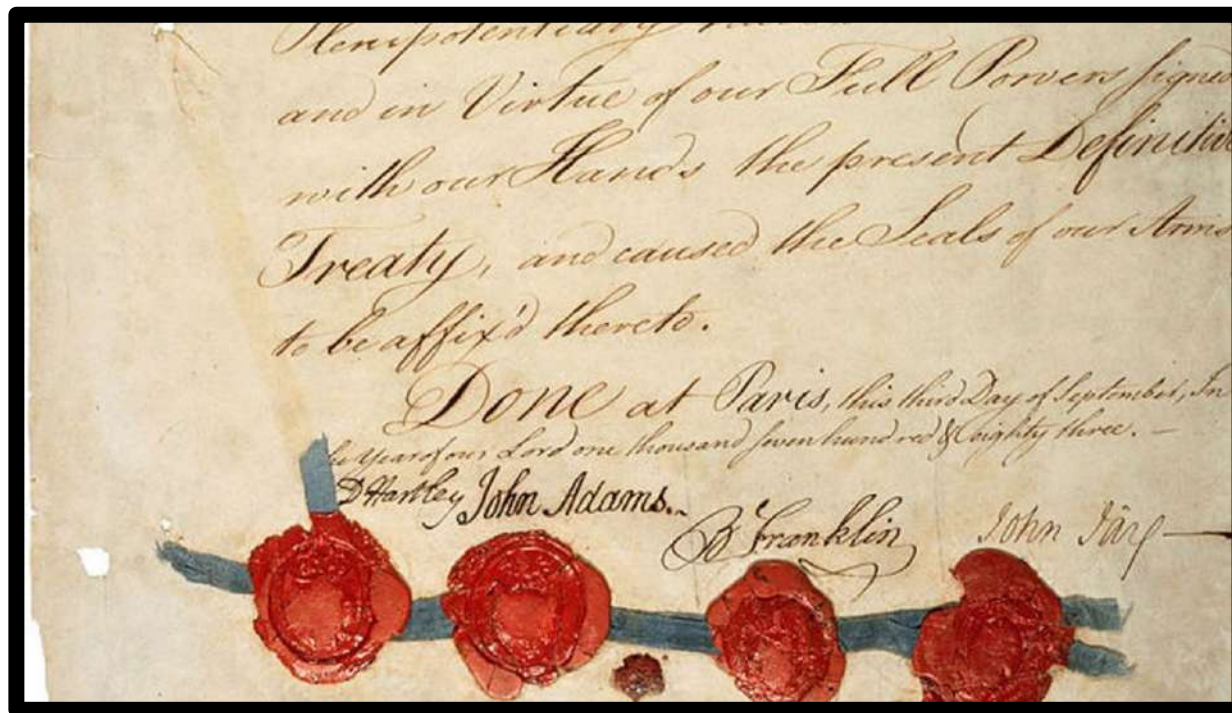 Plenipotentiary
and in Virtue of our Full Powers signe
with our Hands the present Definitiv
Treaty, and caused the Seals of our Arms
to be affix'd thereto.
Done at Paris, this third Day of September, In
he Year of our Lord one thousand seven hundred & eighty three.—
D Hartley John Adams. B Franklin John Jay—